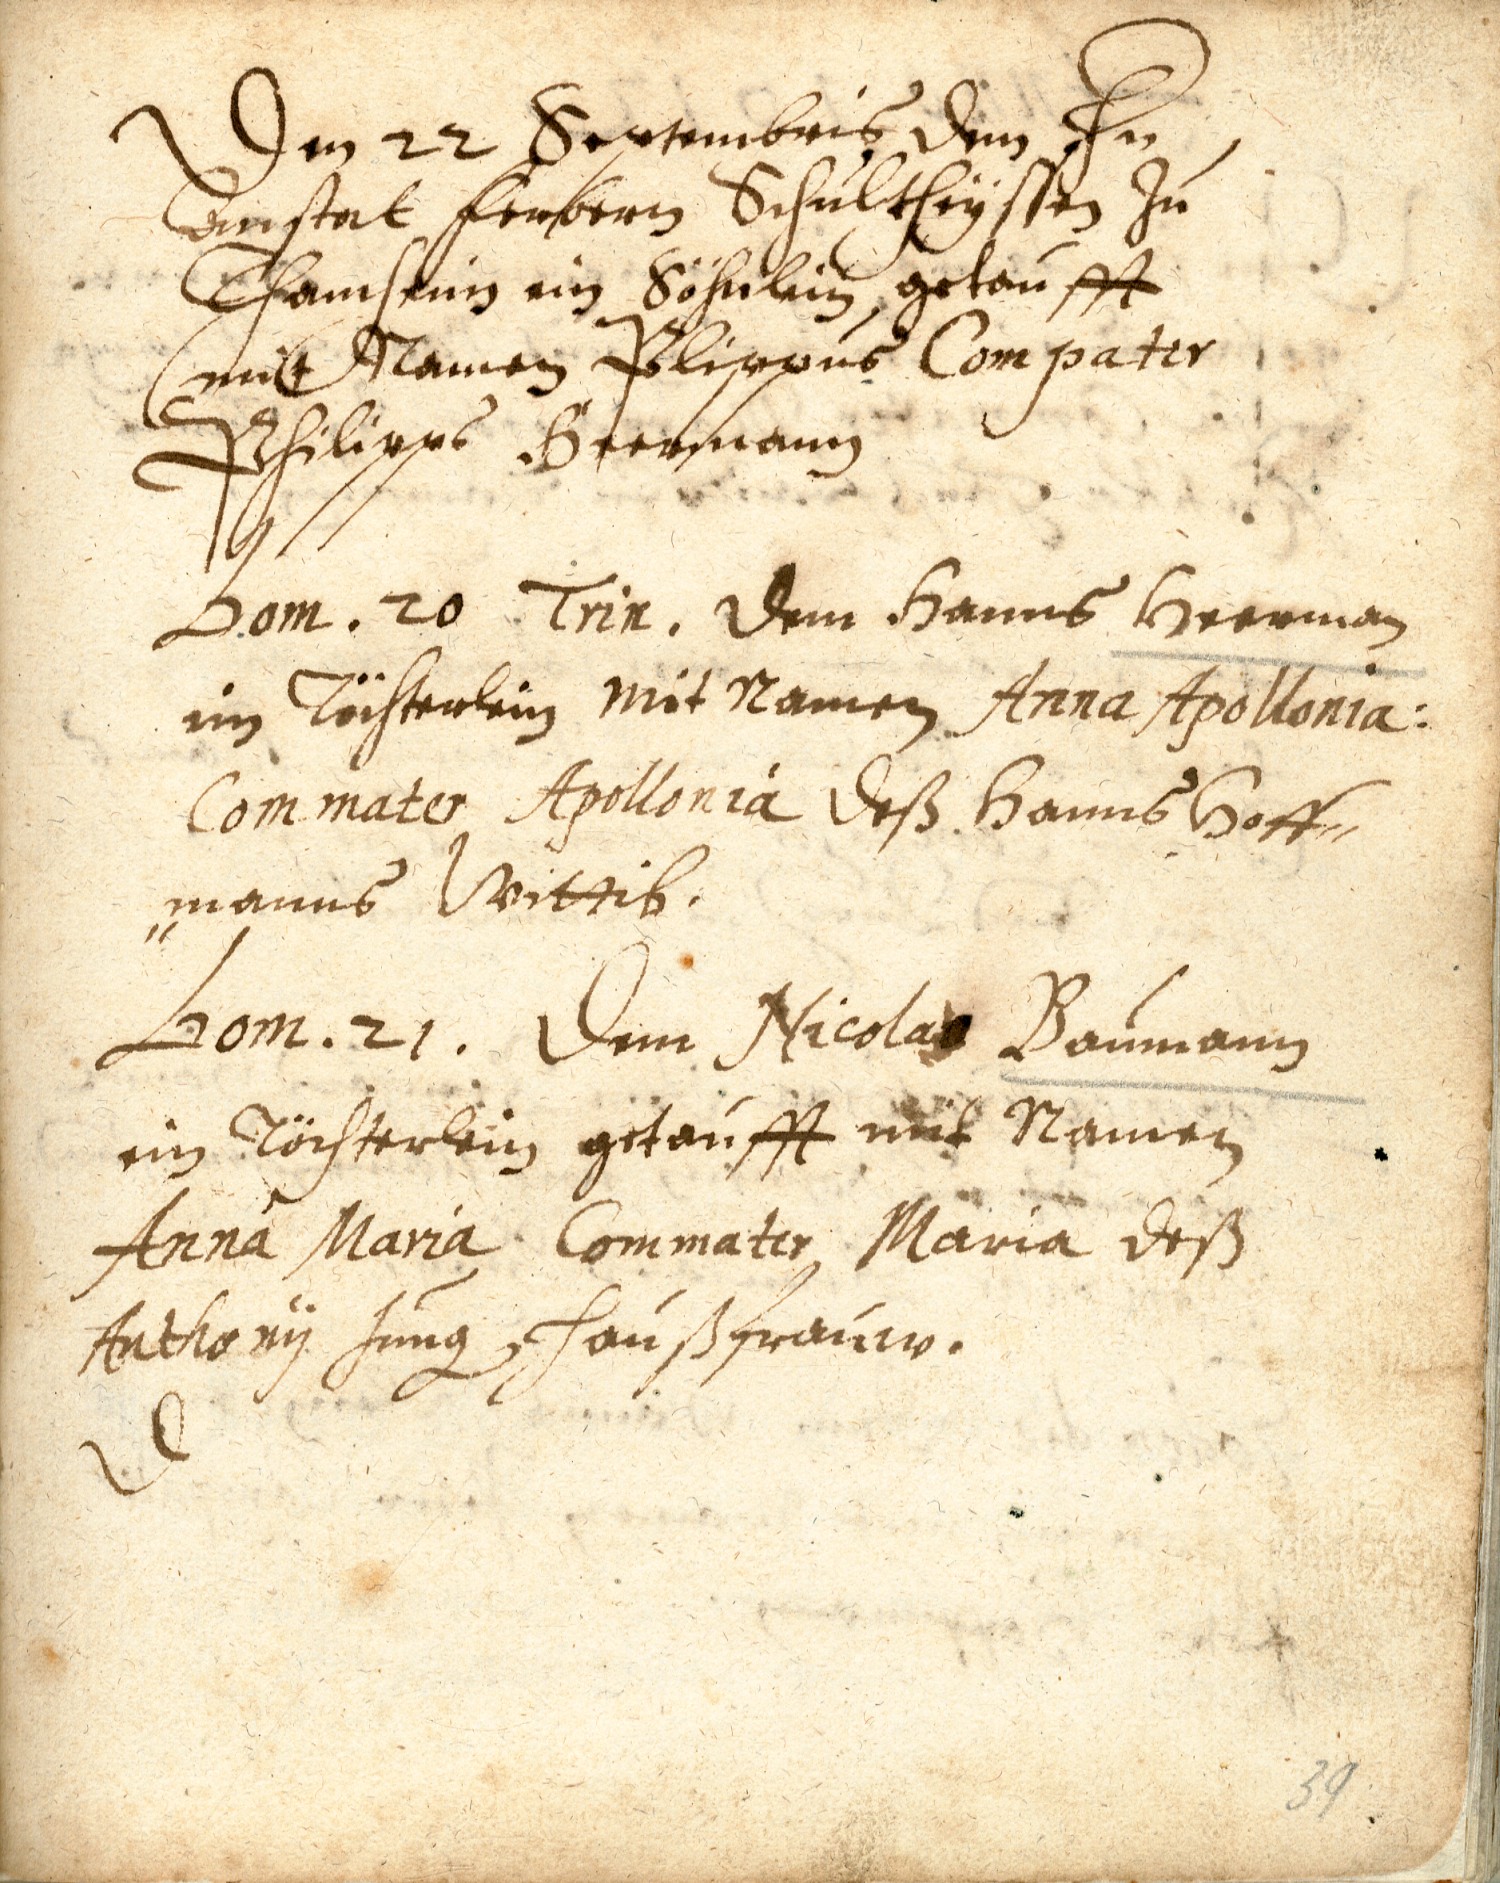 Den 22 Septembris dem Hn
Constat Ferbern Schultheyssen zu
ein Söhnlein getaufft
mit Namen Phlippus Compater
Philipps Heermann
Dom. 20 Trin. dem Hanns Heerman
ein Töchterlein mit Namen Anna Apollonia:
Commater Apollonia deß Hanns Hoff„
„manns Wittib.
Dom. 21. Dem Nicolao Baumann
ein Töchterlein getaufft mit Namen
Anna Maria Commater Maria deß
Anthonij Jung Haußfrauw.
D
39